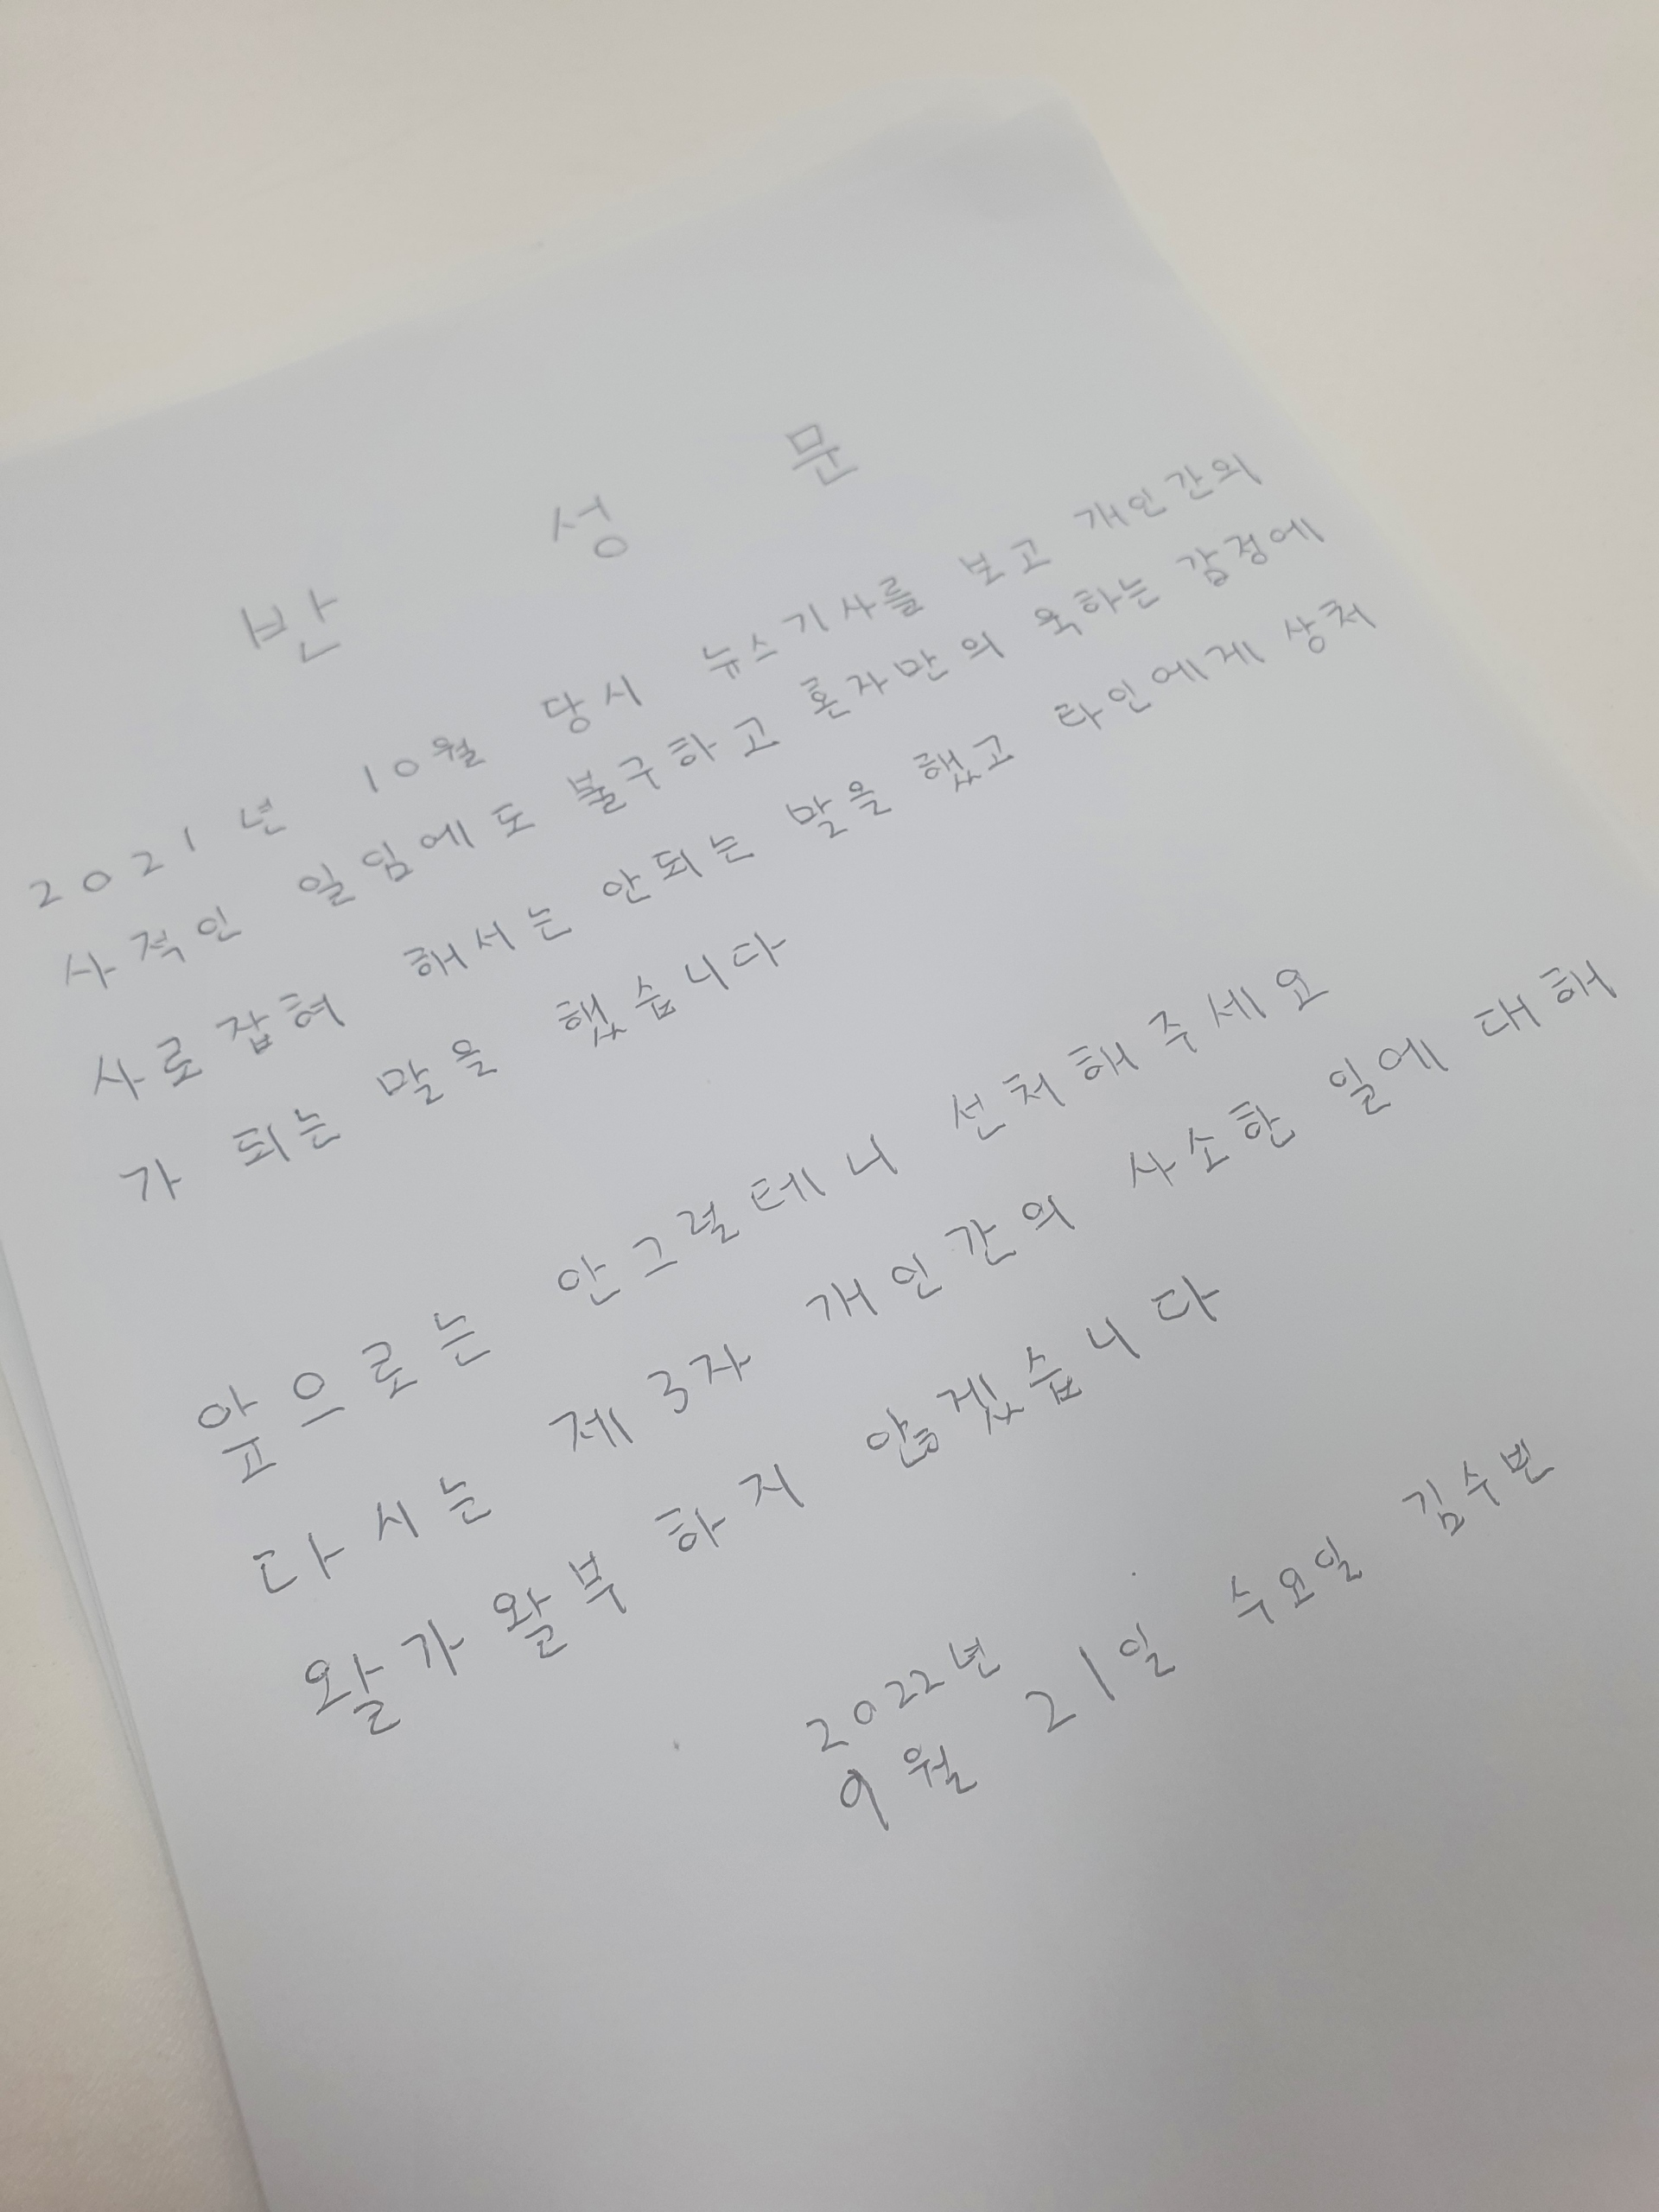 반 성 문
2021년 10월 당시 뉴스기사를 보고 개인간의
사적인 일임에도 불구하고 혼자만의 욱하는 감정에
사로잡혀 해서는 안되는 말을 했고 타인에게 상처
가 되는 말을 했습니다
앞으로는 안그럴테니 선처해주세요
다시는 제3자 개인간의 사소한 일에 대해
왈가왈부 하지 않겠습니다
2022년
9월 21일 수요일 김수빈